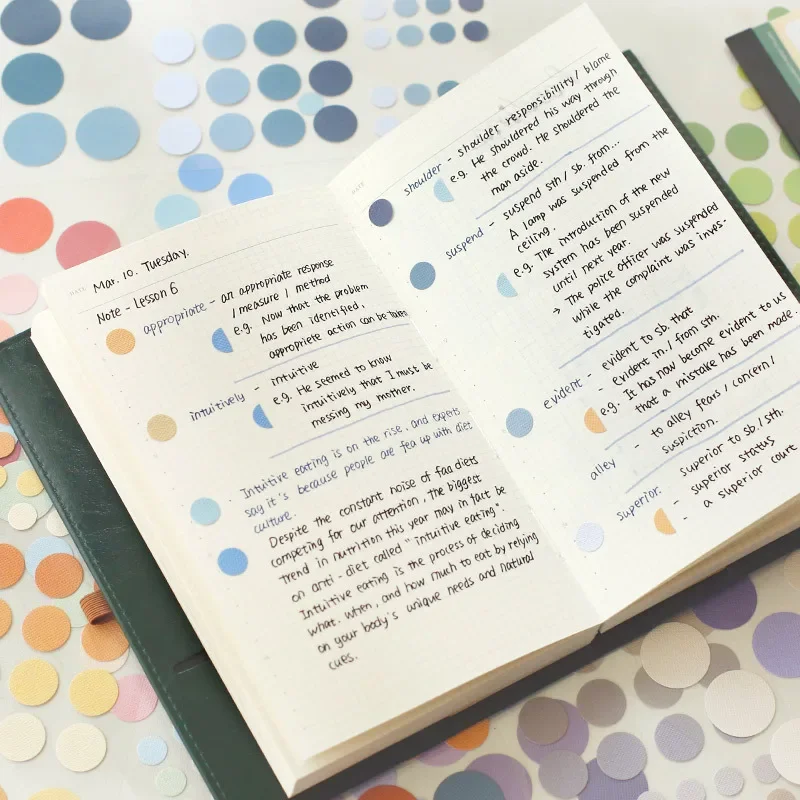 DATE
Mar. 10. Tuesday.
Note - Lesson 6
appropriate - an appropriate response
/ measure / method
e.g. Now that the problem
has been identified,
appropriete action can be taken
intuitively - intuitive
e.g. He seemed to know
intuitively that I must be
messing my mother.
Intuitive eating is on the rise, and experts
say it's because people are fea up with diet
culture.
Despite the constant noise of faa diets
competing for our attention, the biggest
Trend in nutrition this year may in fact be
on anti-diet called "intuitive eating".
Intuitive eating is the process of deciding
what. when, and how much to eat by relying
on your body's unique needs and natural
cues.
DATE
shoulder - shoulder responsibility / blame
e.g. He shouldered his way through
the crowd. He shouldered the
man aside.
suspend - suspend sth / sb. from...
A lamp was suspended from the
ceiling.
e.g. The introduction of the new
system has been suspended
until next year.
→ The police officer was suspended
while the complaint was inves-
tigated.
evident - evident to sb. that
- evident in / from sth.
e.g. It has now become evident to us
that a mistake has been made.
alley - to alley fears / concern /
suspiction.
superior: superior to sb. / sth.
- superior status
- a superior court